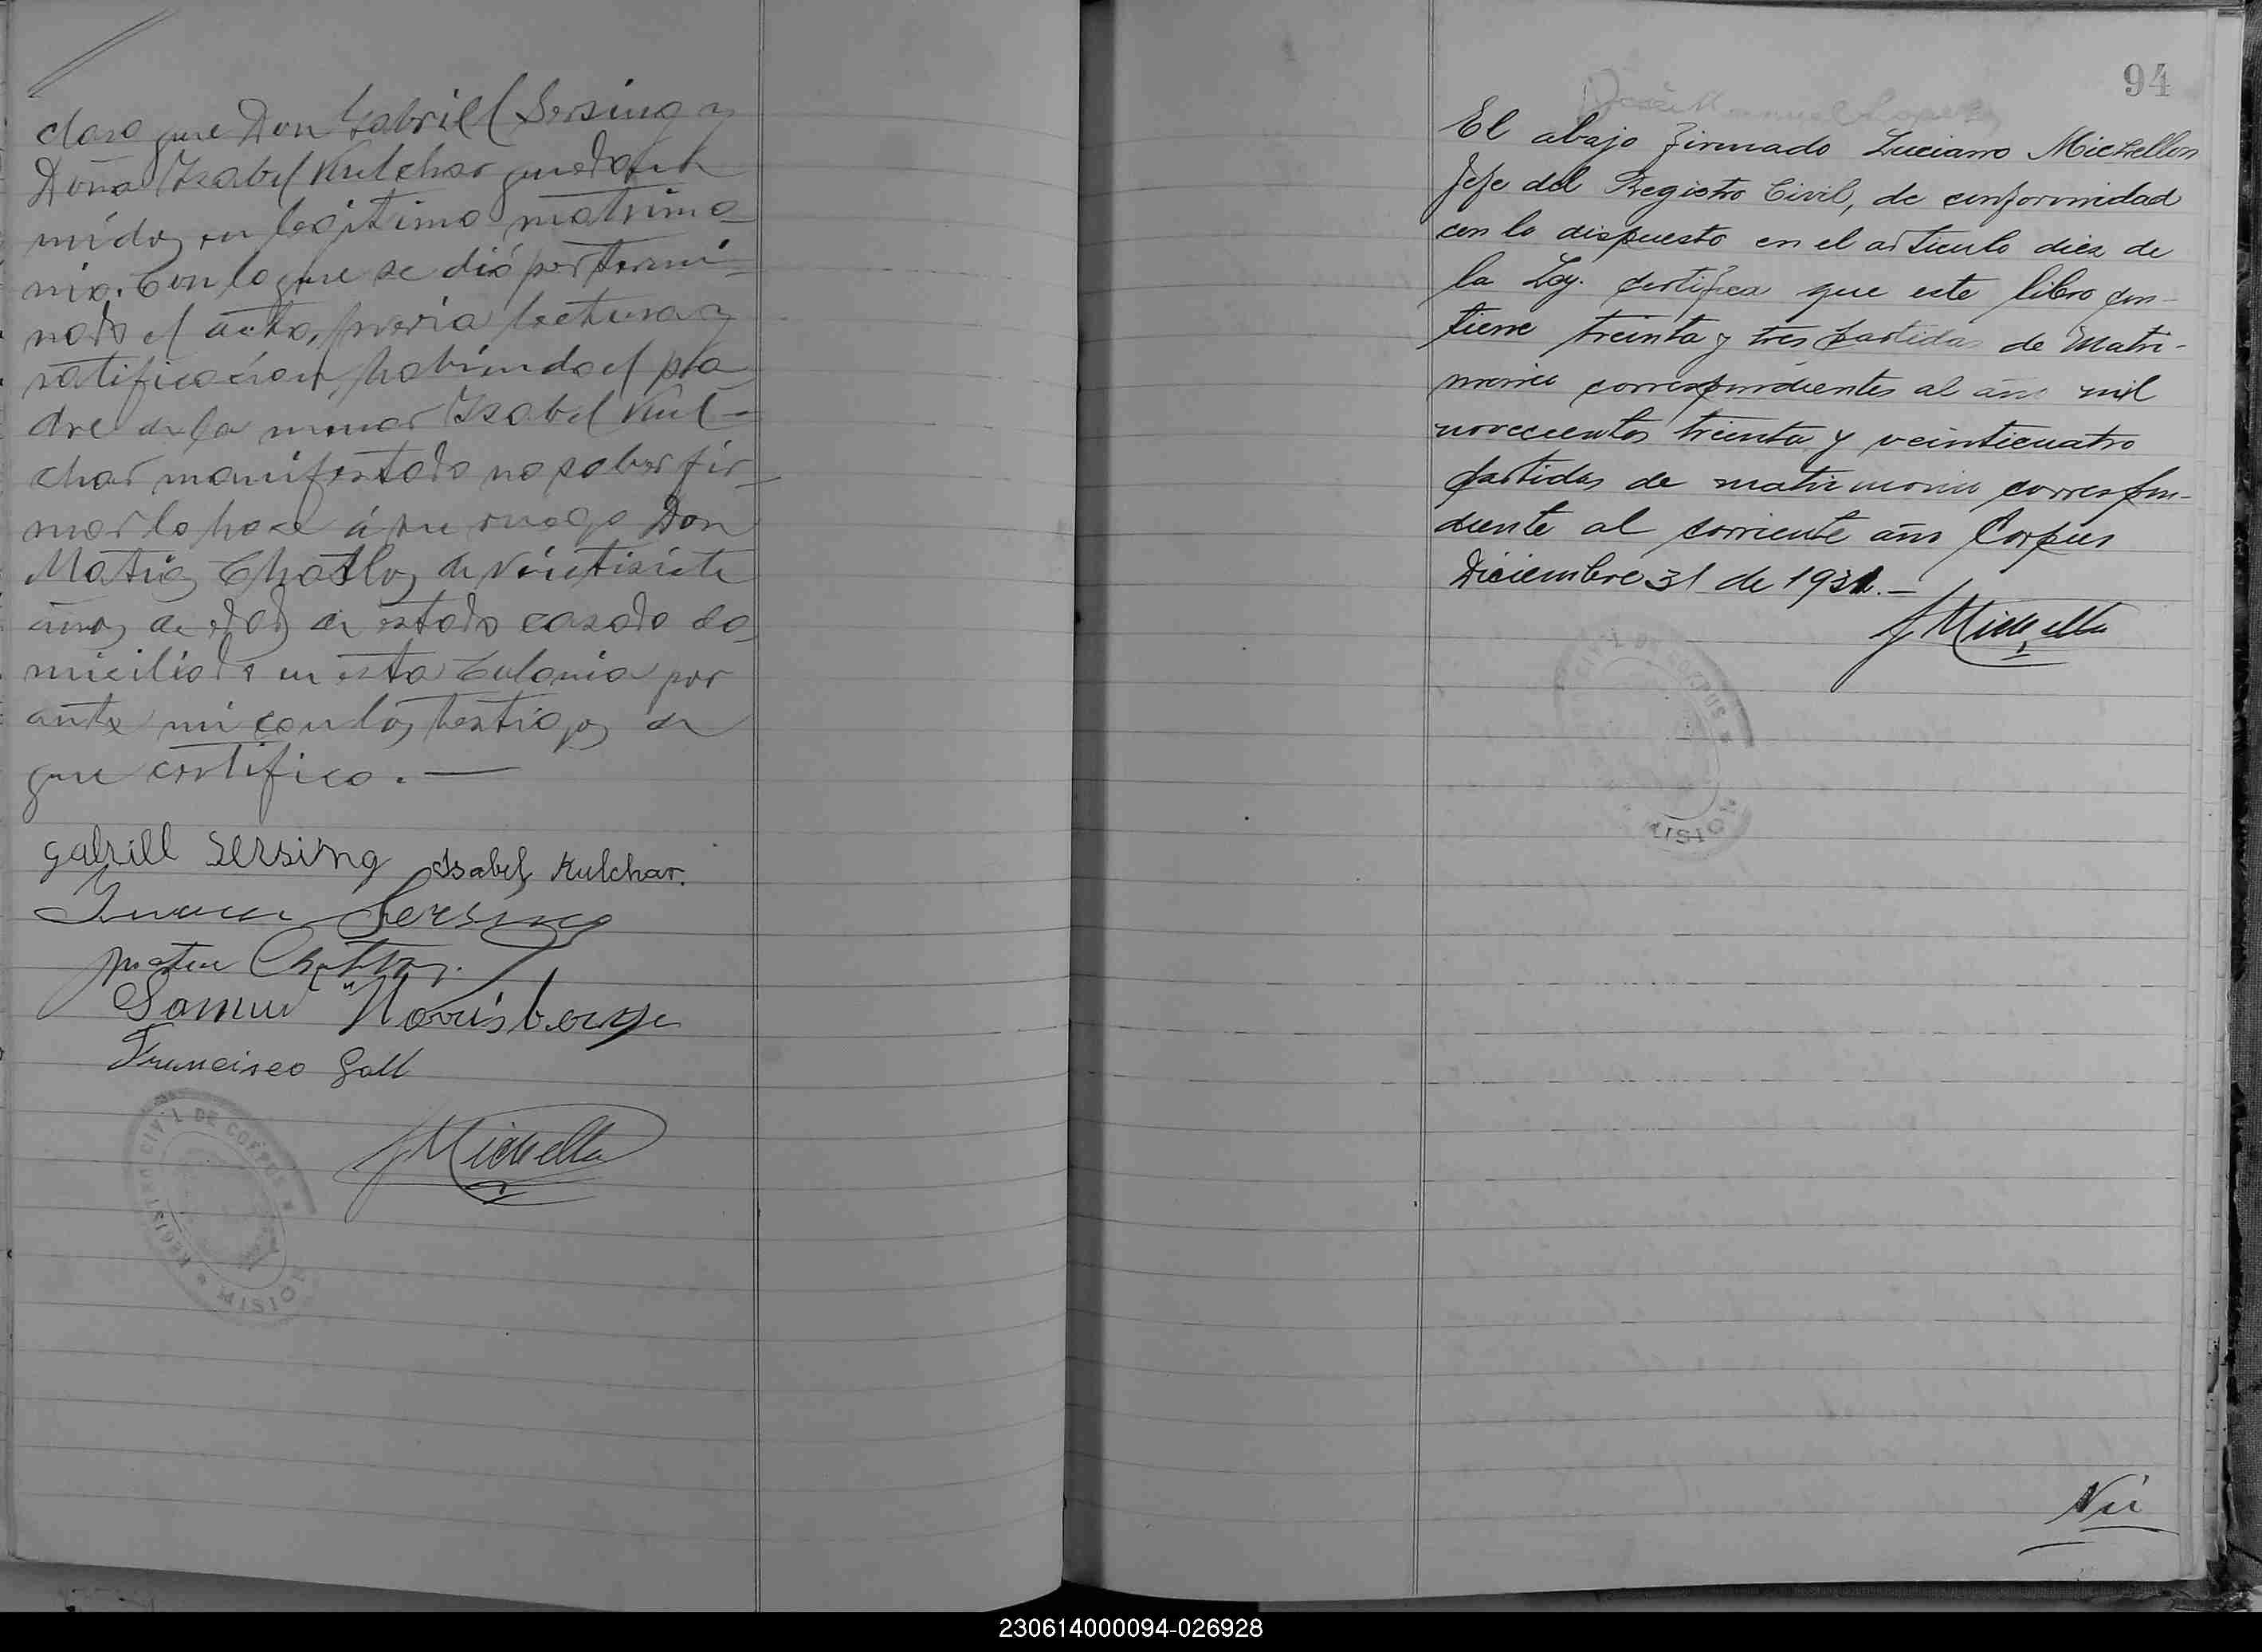 claro que Don Gabriel Sersing y
Doña Isabel Kulchar quedan
unidos en legítimo matrimo-
nio. Con lo que se dió por termi-
nado el acto, previa lectura y
ratificación, habiendo el pa-
dre de la menor Isabel Kul-
char manifestado no saber fir-
mar lo hace á su ruego Don
Matias de veintisiete
años de edad de estado casado do-
miciliado en esta Colonia por
ante mi con los testigos de
que certifico. —
gabrill sersing Isabel Kulchar.
Sersing
Francisco Gall
REGISTRO CIVIL DE CORPUS * MISIO
94
José Manuel Lopez
El abajo firmado Luciano Michellon
Jefe del Registro Civil, de conformidad
con lo dispuesto en el articulo diez de
la Ley. certifica que este libro con-
tiene treinta y tres partidas de Matri-
monio correspondientes al año mil
novecientos treinta y veinticuatro
partidas de matrimonio correspon-
diente al corriente año Corpus
Diciembre 31 de 1931. —
CIVIL DE CORPUS * MISIO
230614000094-026928